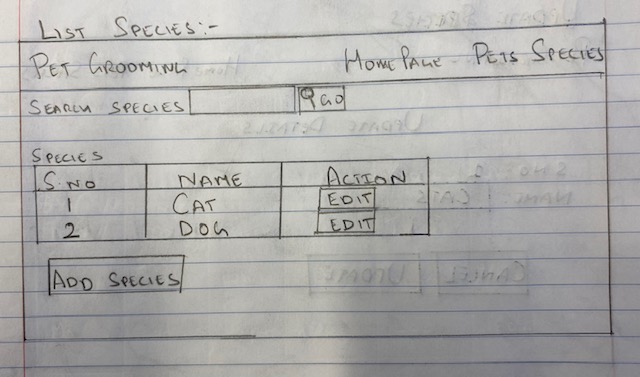 LIST SPECIES:-
PET GROOMING HOMEPAGE PETS SPECIES
SEARCH SPECIES GO
SPECIES
S.NO NAME ACTION
1 CAT EDIT
2 DOG EDIT
ADD SPECIES